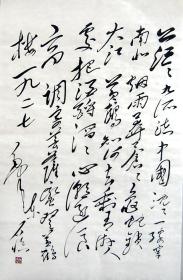 茫〻九派流中國沉〻一線穿
南北烟雨莽苍〻龟蛇锁
大江黄鹤知何去剩有游人
处把酒酹滔〻心潮逐浪
高调寄菩萨蛮登黄鹤
楼一九二七毛泽东